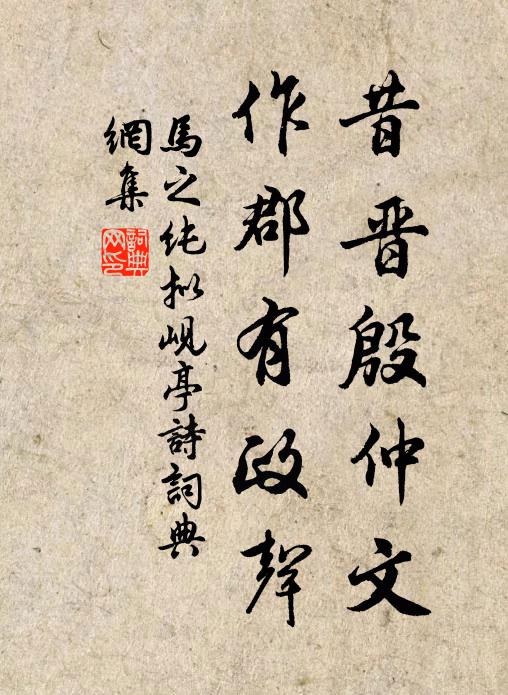 昔晋殷仲文
作郡有政聲
馬之纯拟峴亭詩詞典
網集
詞典
网印